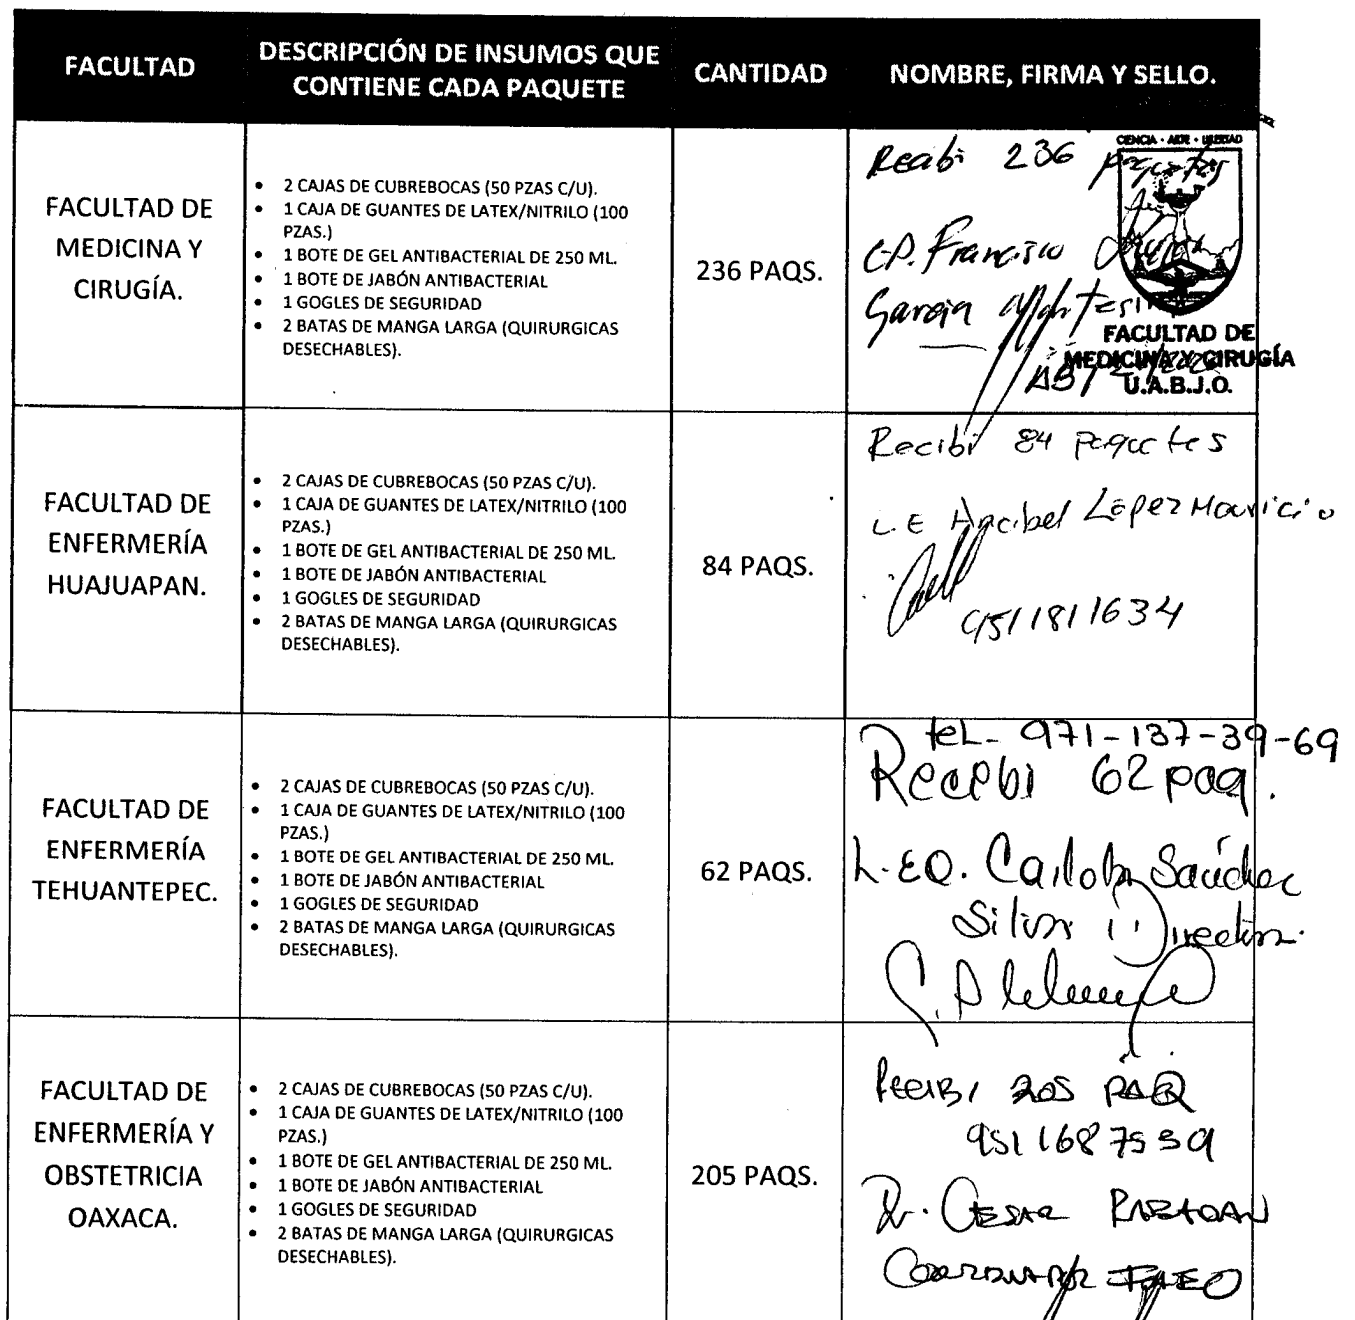 FACULTAD
DESCRIPCIÓN DE INSUMOS QUE
CONTIENE CADA PAQUETE
CANTIDAD
NOMBRE, FIRMA Y SELLO.
FACULTAD DE
MEDICINA Y
CIRUGÍA.
• 2 CAJAS DE CUBREBOCAS (50 PZAS C/U).
• 1 CAJA DE GUANTES DE LATEX/NITRILO (100
PZAS.)
• 1 BOTE DE GEL ANTIBACTERIAL DE 250 ML.
• 1 BOTE DE JABÓN ANTIBACTERIAL
• 1 GOGLES DE SEGURIDAD
• 2 BATAS DE MANGA LARGA (QUIRURGICAS
DESECHABLES).
236 PAQS.
Recibi 236 paquetes
C.P. Francisco
Garcia
CIENCIA · ARTE · LIBERTAD
FACULTAD DE
MEDICINA Y CIRUGÍA
U.A.B.J.O.
FACULTAD DE
ENFERMERÍA
HUAJUAPAN.
• 2 CAJAS DE CUBREBOCAS (50 PZAS C/U).
• 1 CAJA DE GUANTES DE LATEX/NITRILO (100
PZAS.)
• 1 BOTE DE GEL ANTIBACTERIAL DE 250 ML.
• 1 BOTE DE JABÓN ANTIBACTERIAL
• 1 GOGLES DE SEGURIDAD
• 2 BATAS DE MANGA LARGA (QUIRURGICAS
DESECHABLES).
84 PAQS.
Recibi 84 paquetes
L.E López Mauricio
9511811634
FACULTAD DE
ENFERMERÍA
TEHUANTEPEC.
• 2 CAJAS DE CUBREBOCAS (50 PZAS C/U).
• 1 CAJA DE GUANTES DE LATEX/NITRILO (100
PZAS.)
• 1 BOTE DE GEL ANTIBACTERIAL DE 250 ML.
• 1 BOTE DE JABÓN ANTIBACTERIAL
• 1 GOGLES DE SEGURIDAD
• 2 BATAS DE MANGA LARGA (QUIRURGICAS
DESECHABLES).
62 PAQS.
tel- 971-137-39-69
Recibi 62 paq.
L.EO. Carlota Sánchez
Silva Directora.
FACULTAD DE
ENFERMERÍA Y
OBSTETRICIA
OAXACA.
• 2 CAJAS DE CUBREBOCAS (50 PZAS C/U).
• 1 CAJA DE GUANTES DE LATEX/NITRILO (100
PZAS.)
• 1 BOTE DE GEL ANTIBACTERIAL DE 250 ML.
• 1 BOTE DE JABÓN ANTIBACTERIAL
• 1 GOGLES DE SEGURIDAD
• 2 BATAS DE MANGA LARGA (QUIRURGICAS
DESECHABLES).
205 PAQS.
RECIBI 205 PAQ
Dr. CESAR
COORDINADOR